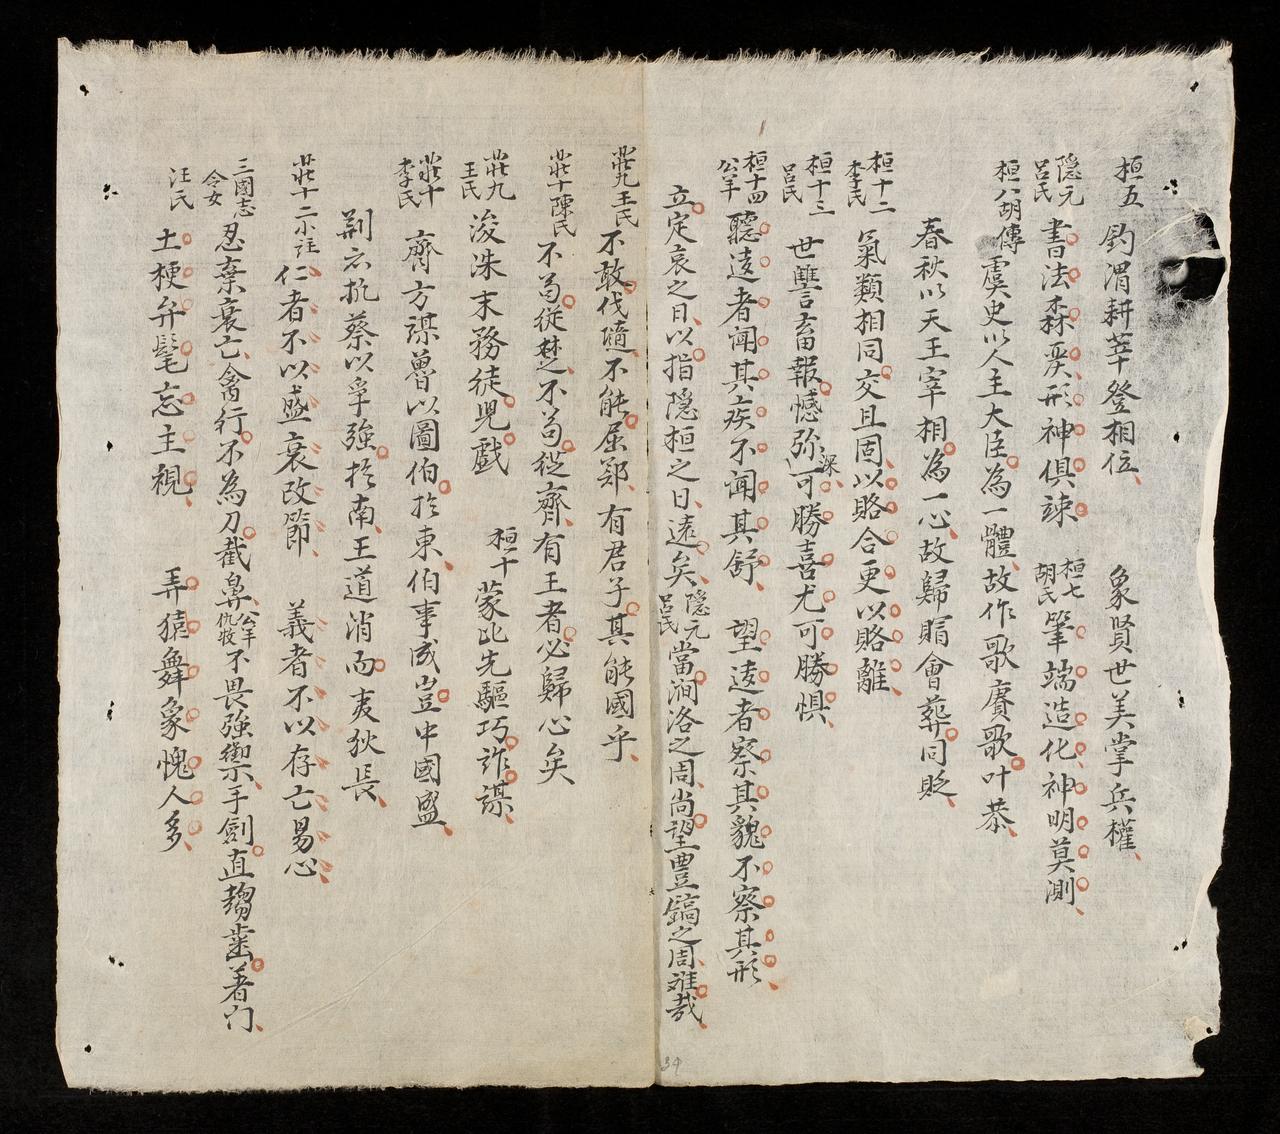 桓五 釣渭耕莘登相位 象賢世美掌兵權
隱元呂氏 書法森嚴形神俱竦 桓七胡氏 筆端造化神明莫測
桓八胡傳 虞史以人主大臣為一體故作歌賡歌叶恭
春秋以天王宰相為一心故歸賵會葬同貶
桓十二李氏 氣類相同交且固以賂合更以賂離
桓十三呂氏 世讐畜報憾弥深可勝喜尤可勝惧
桓十四公羊 聽遠者闻其疾不闻其舒 望遠者察其貌不察其形
立定哀之日以指隐桓之日遠矣 隱元呂氏 當澗洛之周尚望豐鎬之周難哉
莊九王氏 不敢伐隨不能屈郑有君子其能國乎
莊十陳氏 不苟從楚不苟從齊有王者必歸心矣
莊九王氏 浚洙末務徒児戲 桓十 蒙比先驅巧詐謀
莊十李氏 齊方謀魯以圖伯於東伯事成豈中國盛
荆亦抗蔡以爭強於南王道消而夷狄長
莊十二小註 仁者不以盛衰改節 義者不以存亡易心
三國志令女 忍棄衰亡禽行不為刀截鼻 公羊仇牧 不畏強禦手劍直趨齒着门
汪氏 土梗弁髦忘主視 弄猿舞象愧人多
34